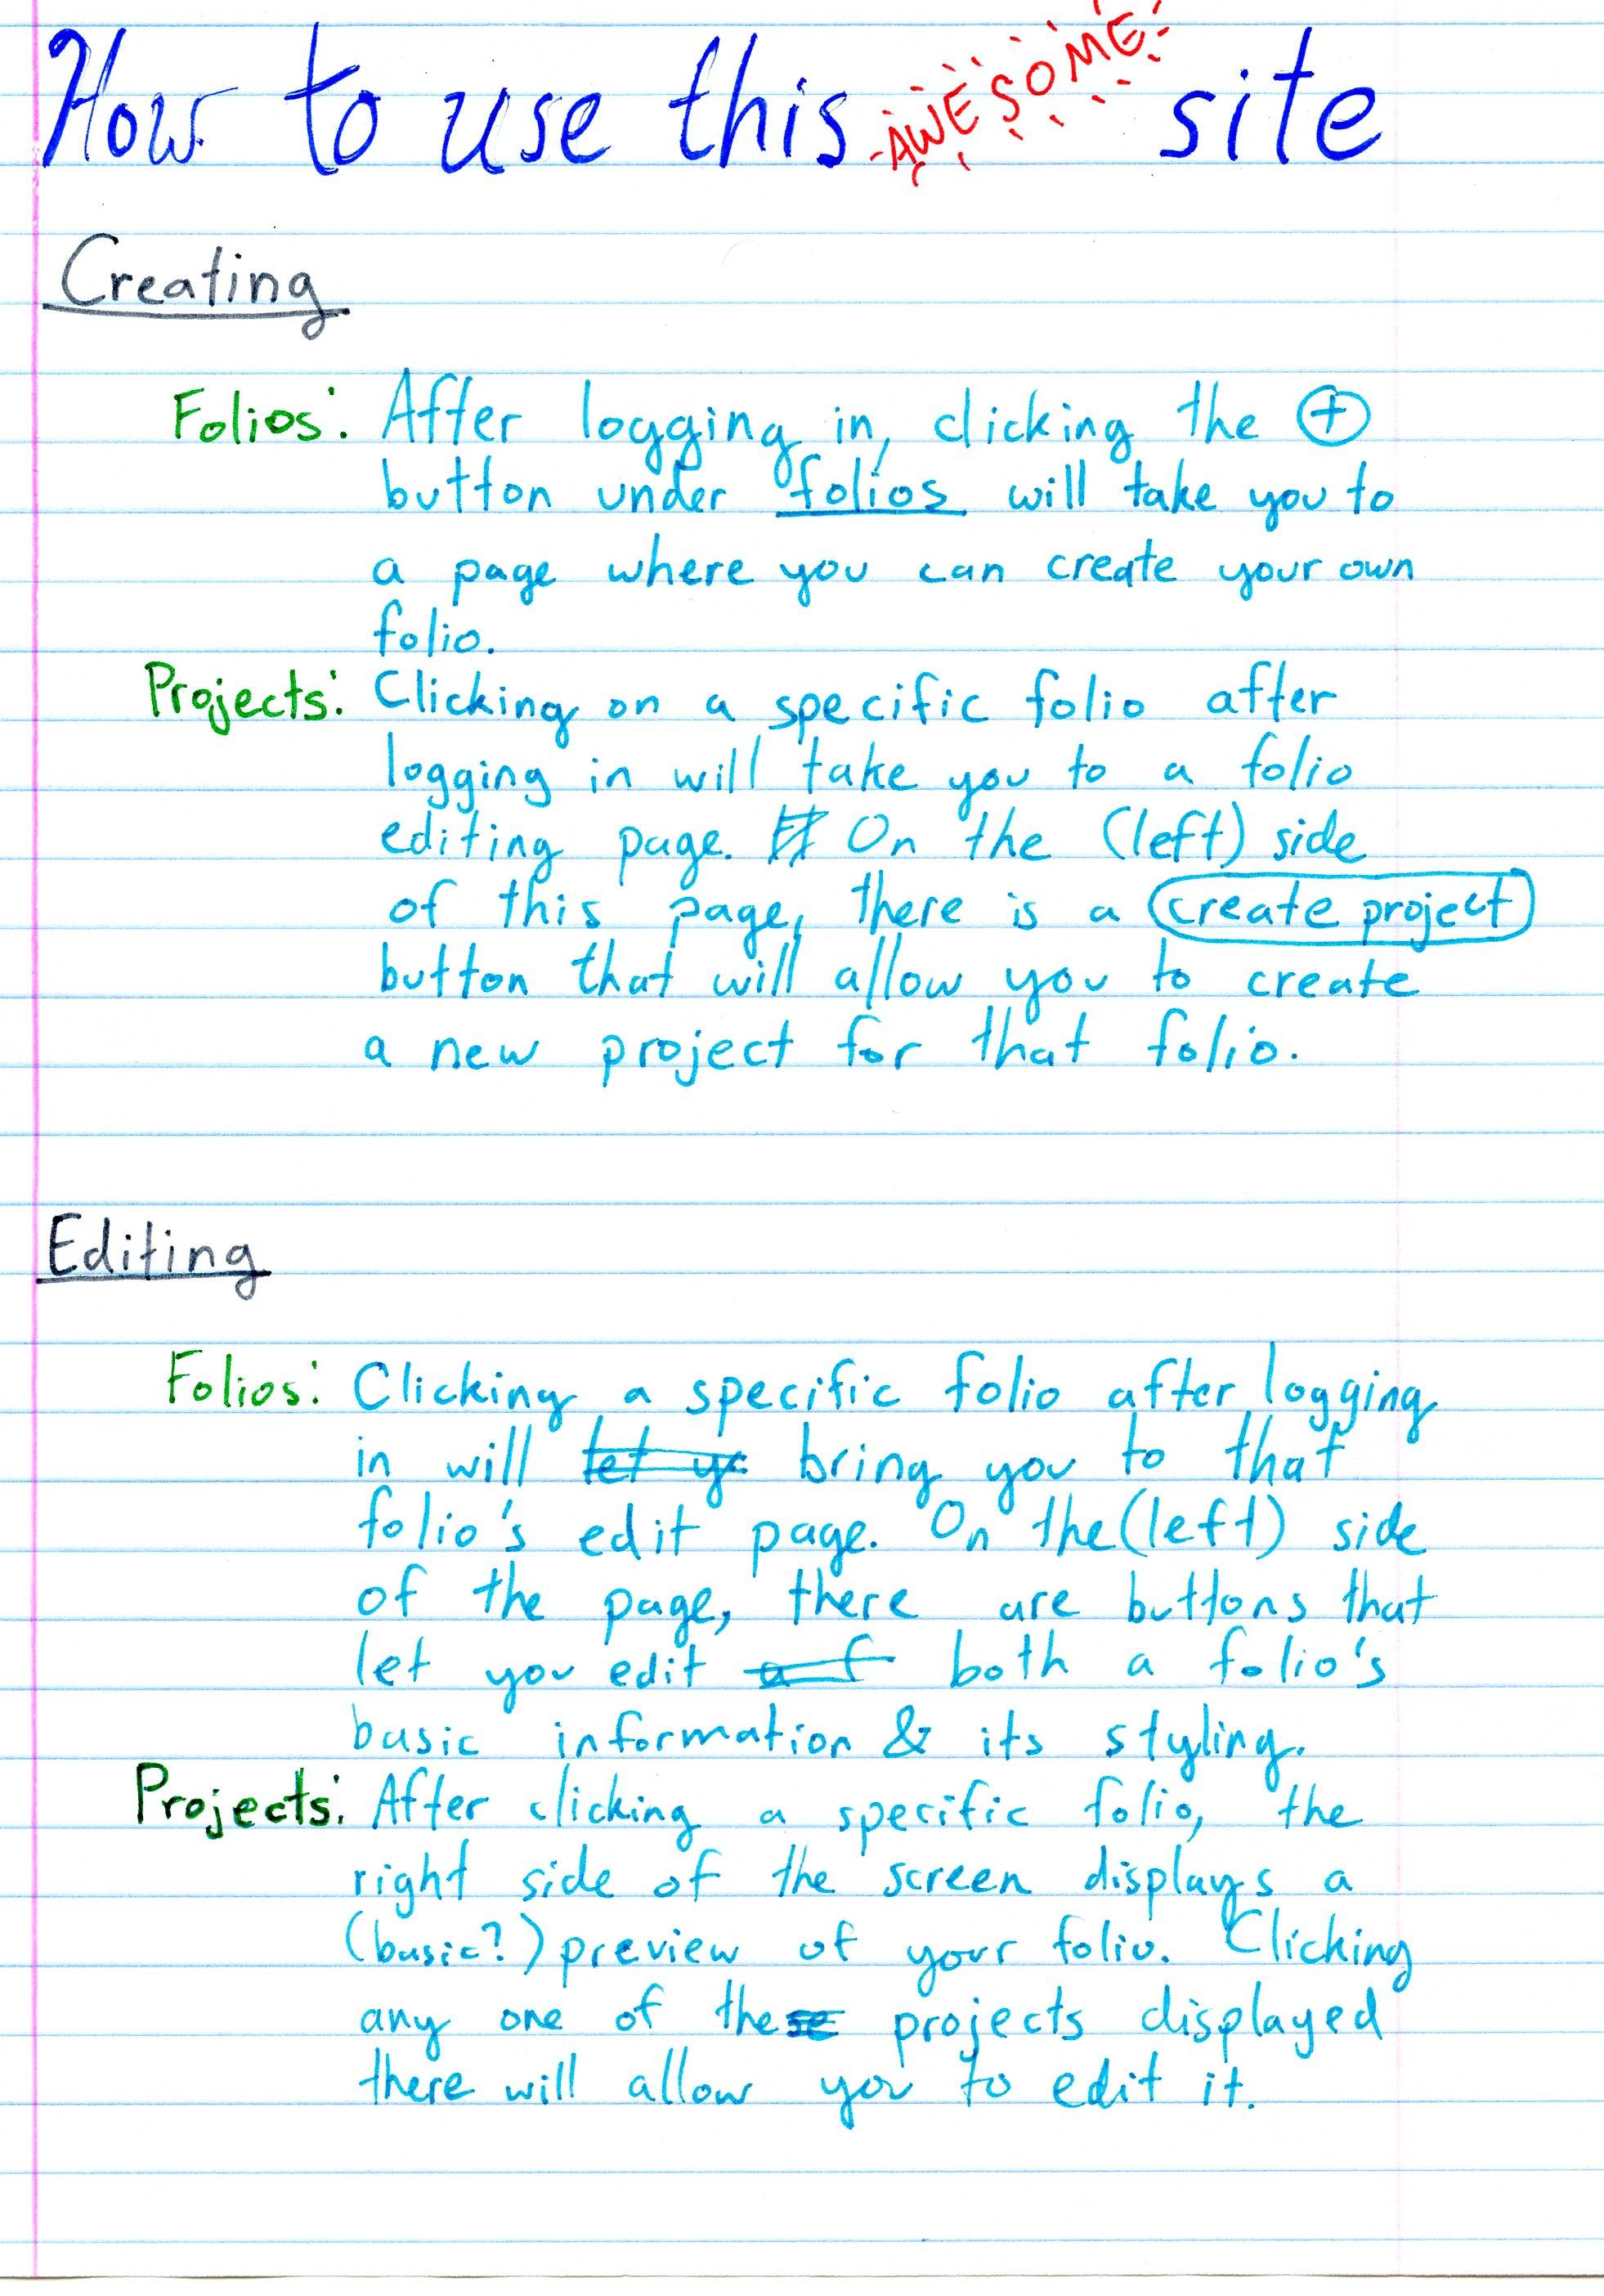 How to use this AWESOME site
Creating
Folios: After logging in, clicking the +
button under folios will take you to
a page where you can create your own
folio.
Projects: Clicking on a specific folio after
logging in will take you to a folio
editing page. On the (left) side
of this page, there is a create project
button that will allow you to create
a new project for that folio.
Editing
Folios: Clicking a specific folio after logging
in will let yo bring you to that
folio's edit page. On the (left) side
of the page, there are buttons that
let you edit a f both a folio's
basic information & its styling.
Projects: After clicking a specific folio, the
right side of the screen displays a
(basic?) preview of your folio. Clicking
any one of these projects displayed
there will allow you to edit it.